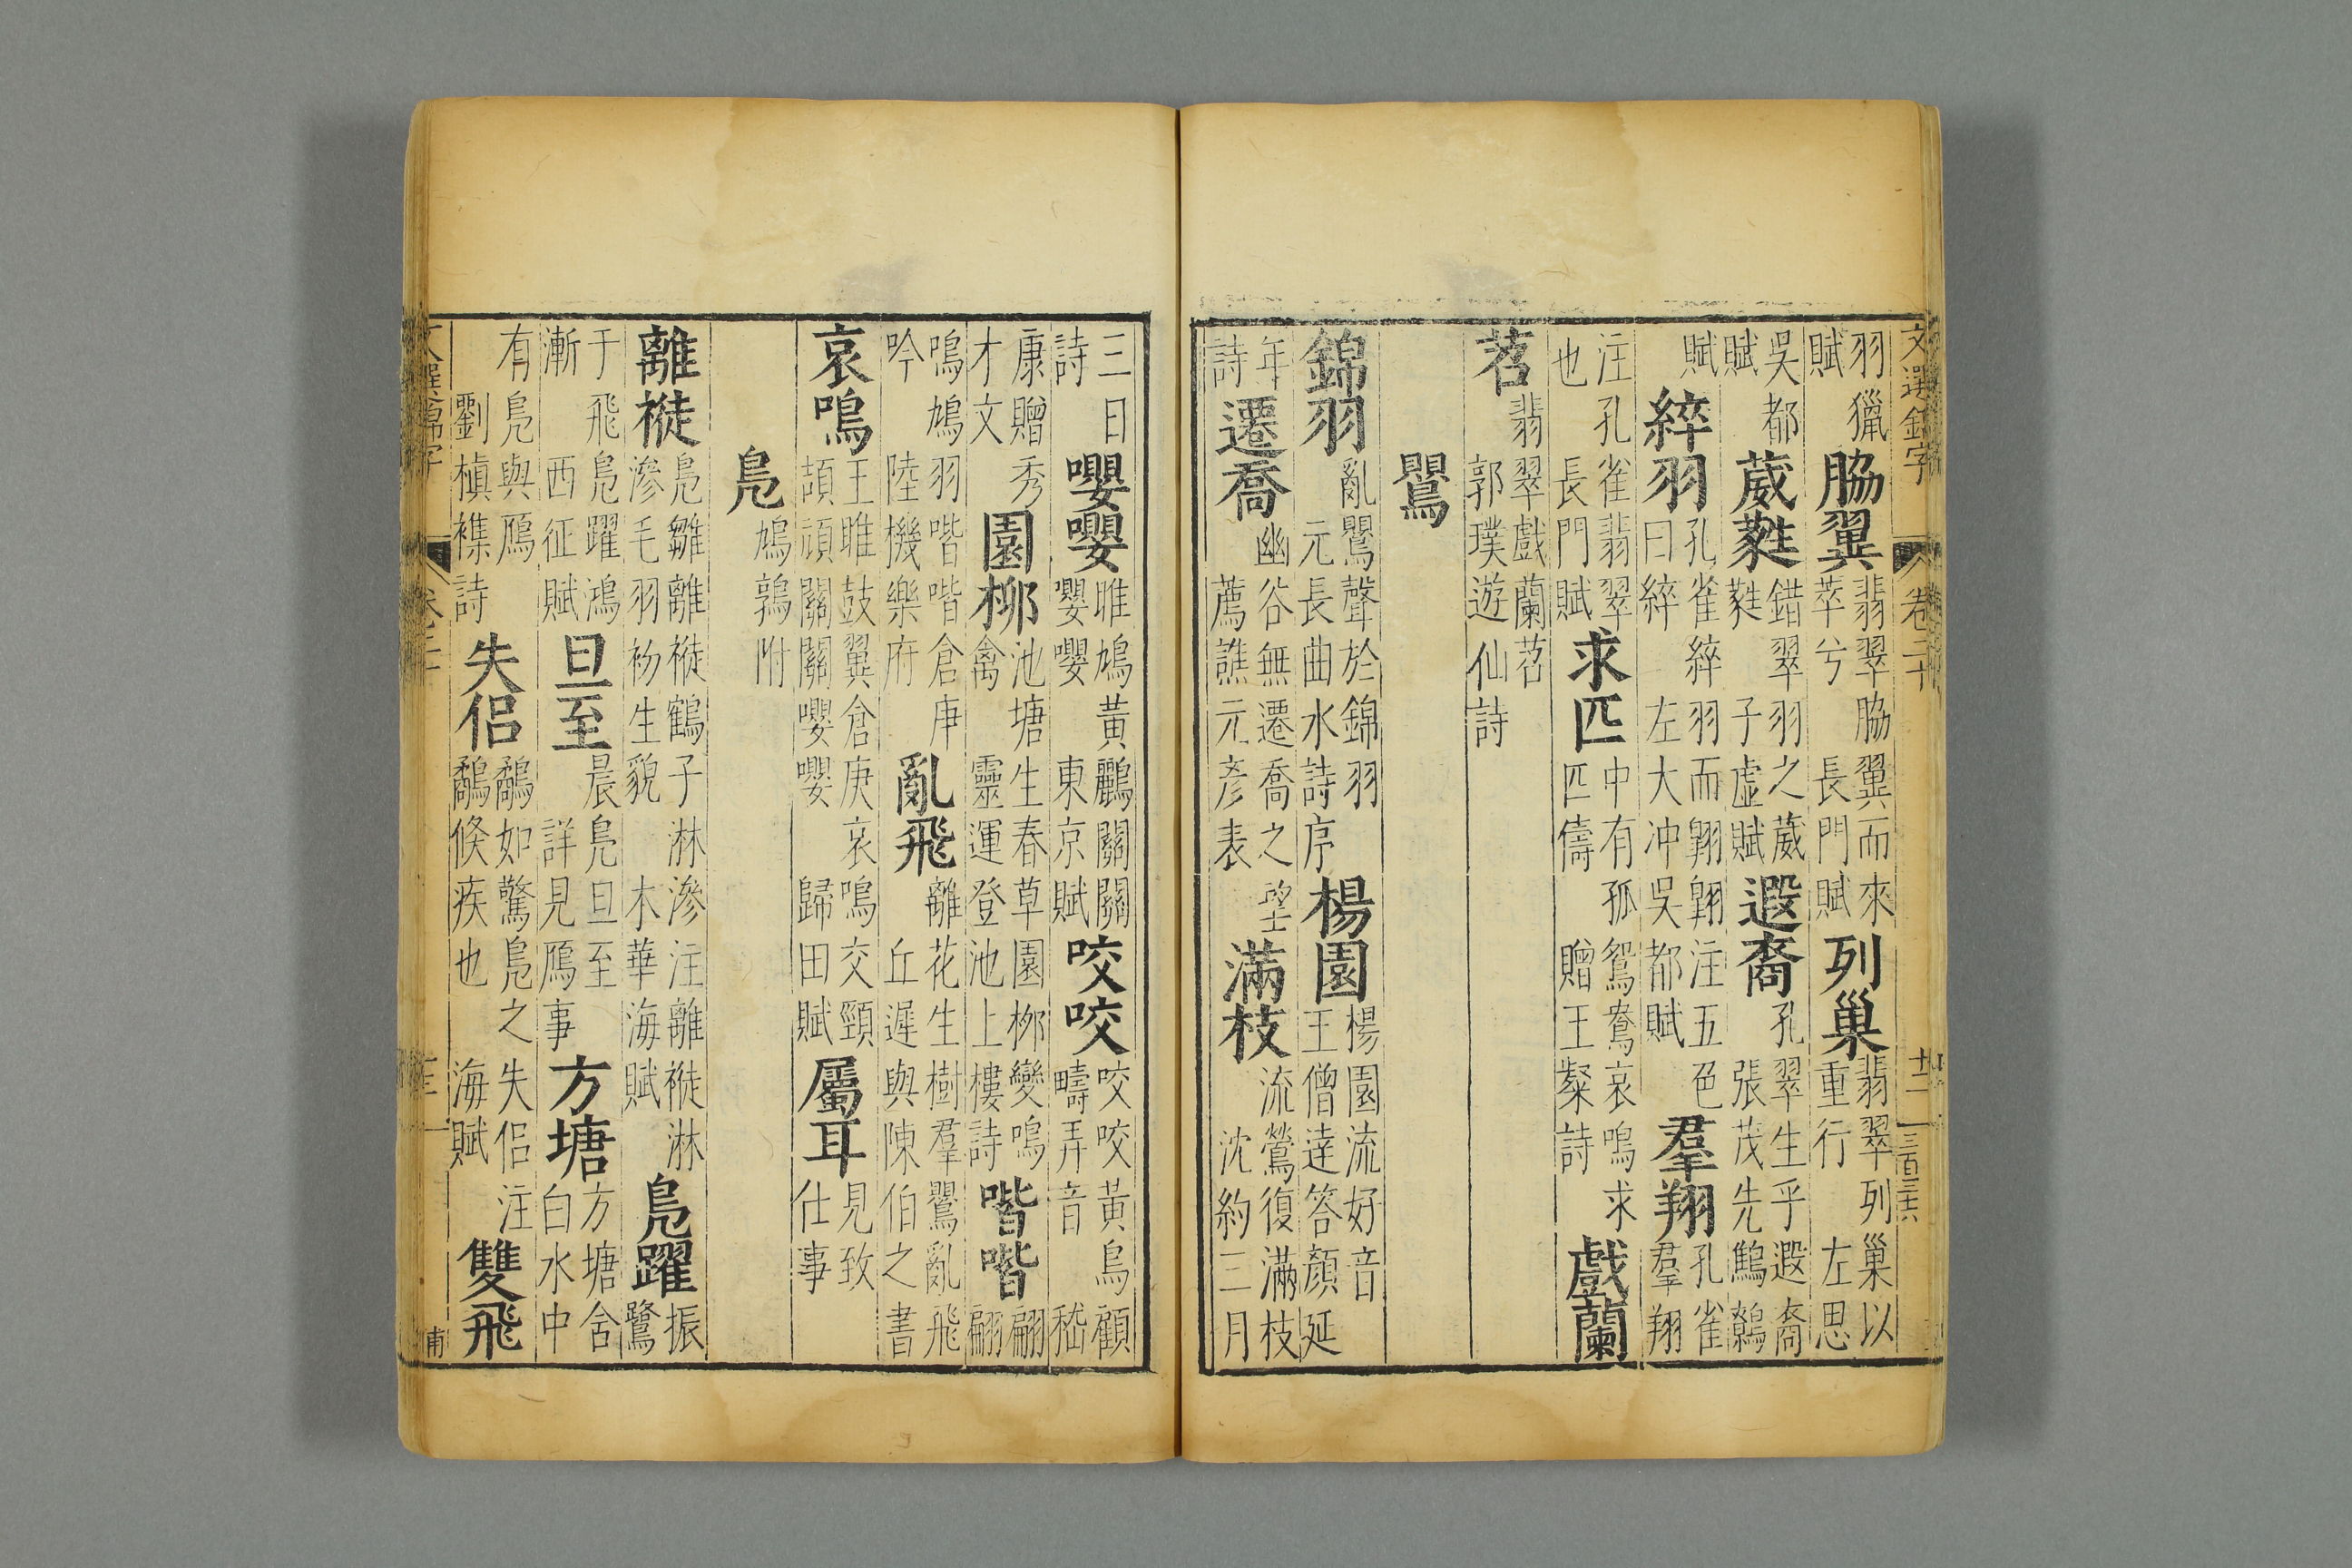 文選錦字 卷二十 十二 三百三十六
羽獵
賦 脇翼 翡翠脇翼而來
萃兮 長門賦 列巢 翡翠列巢以
重行 左思
吳都
賦 葳蕤 錯翠羽之葳
蕤 子虛賦 遐裔 孔翠生乎遐裔
張茂先鷦鷯
賦 綷羽 孔雀綷羽而翱翔注五色
曰綷 左太冲吳都賦 羣翔 孔雀
羣翔
注孔雀翡翠
也 長門賦 求匹 中有孤鴛鴦哀鳴求
匹儔 贈王粲詩 戲蘭
苕 翡翠戲蘭苕
郭璞遊仙詩
鸎
錦羽 亂鸎聲於錦羽
元長曲水詩序 楊園 楊園流好音
王僧達答顏延
年
詩 遷喬 幽谷無遷喬之望
薦譙元彥表 滿枝 流鶯復滿枝
沈約三月
三日
詩 嚶嚶 雎鳩黃鸝關關
嚶嚶 東京賦 咬咬 咬咬黃鳥顧
疇弄音 嵇
康贈秀
才文 園柳 池塘生春草園柳變鳴
禽 靈運登池上樓詩 喈喈 翩翩
翩翩
鳴鳩羽喈喈倉庚
吟 陸機樂府 亂飛 雜花生樹羣鸎亂飛
丘遲與陳伯之書
哀鳴 王雎鼓翼倉庚哀鳴交頸
頡頏關關嚶嚶 歸田賦 屬耳 見致
仕事
鳧 鳩鶉附
離褷 鳧雛離褷鶴子淋滲注離褷淋
滲毛羽初生貌 木華海賦 鳧躍 振
鷺
于飛鳧躍鴻
漸 西征賦 旦至 晨鳧旦至
詳見鴈事 方塘 方塘含
白水中
有鳧與鴈
劉楨襍詩 失侶 鷸如驚鳧之失侶注
鷸倏疾也 海賦 雙飛
文選錦字 卷二十